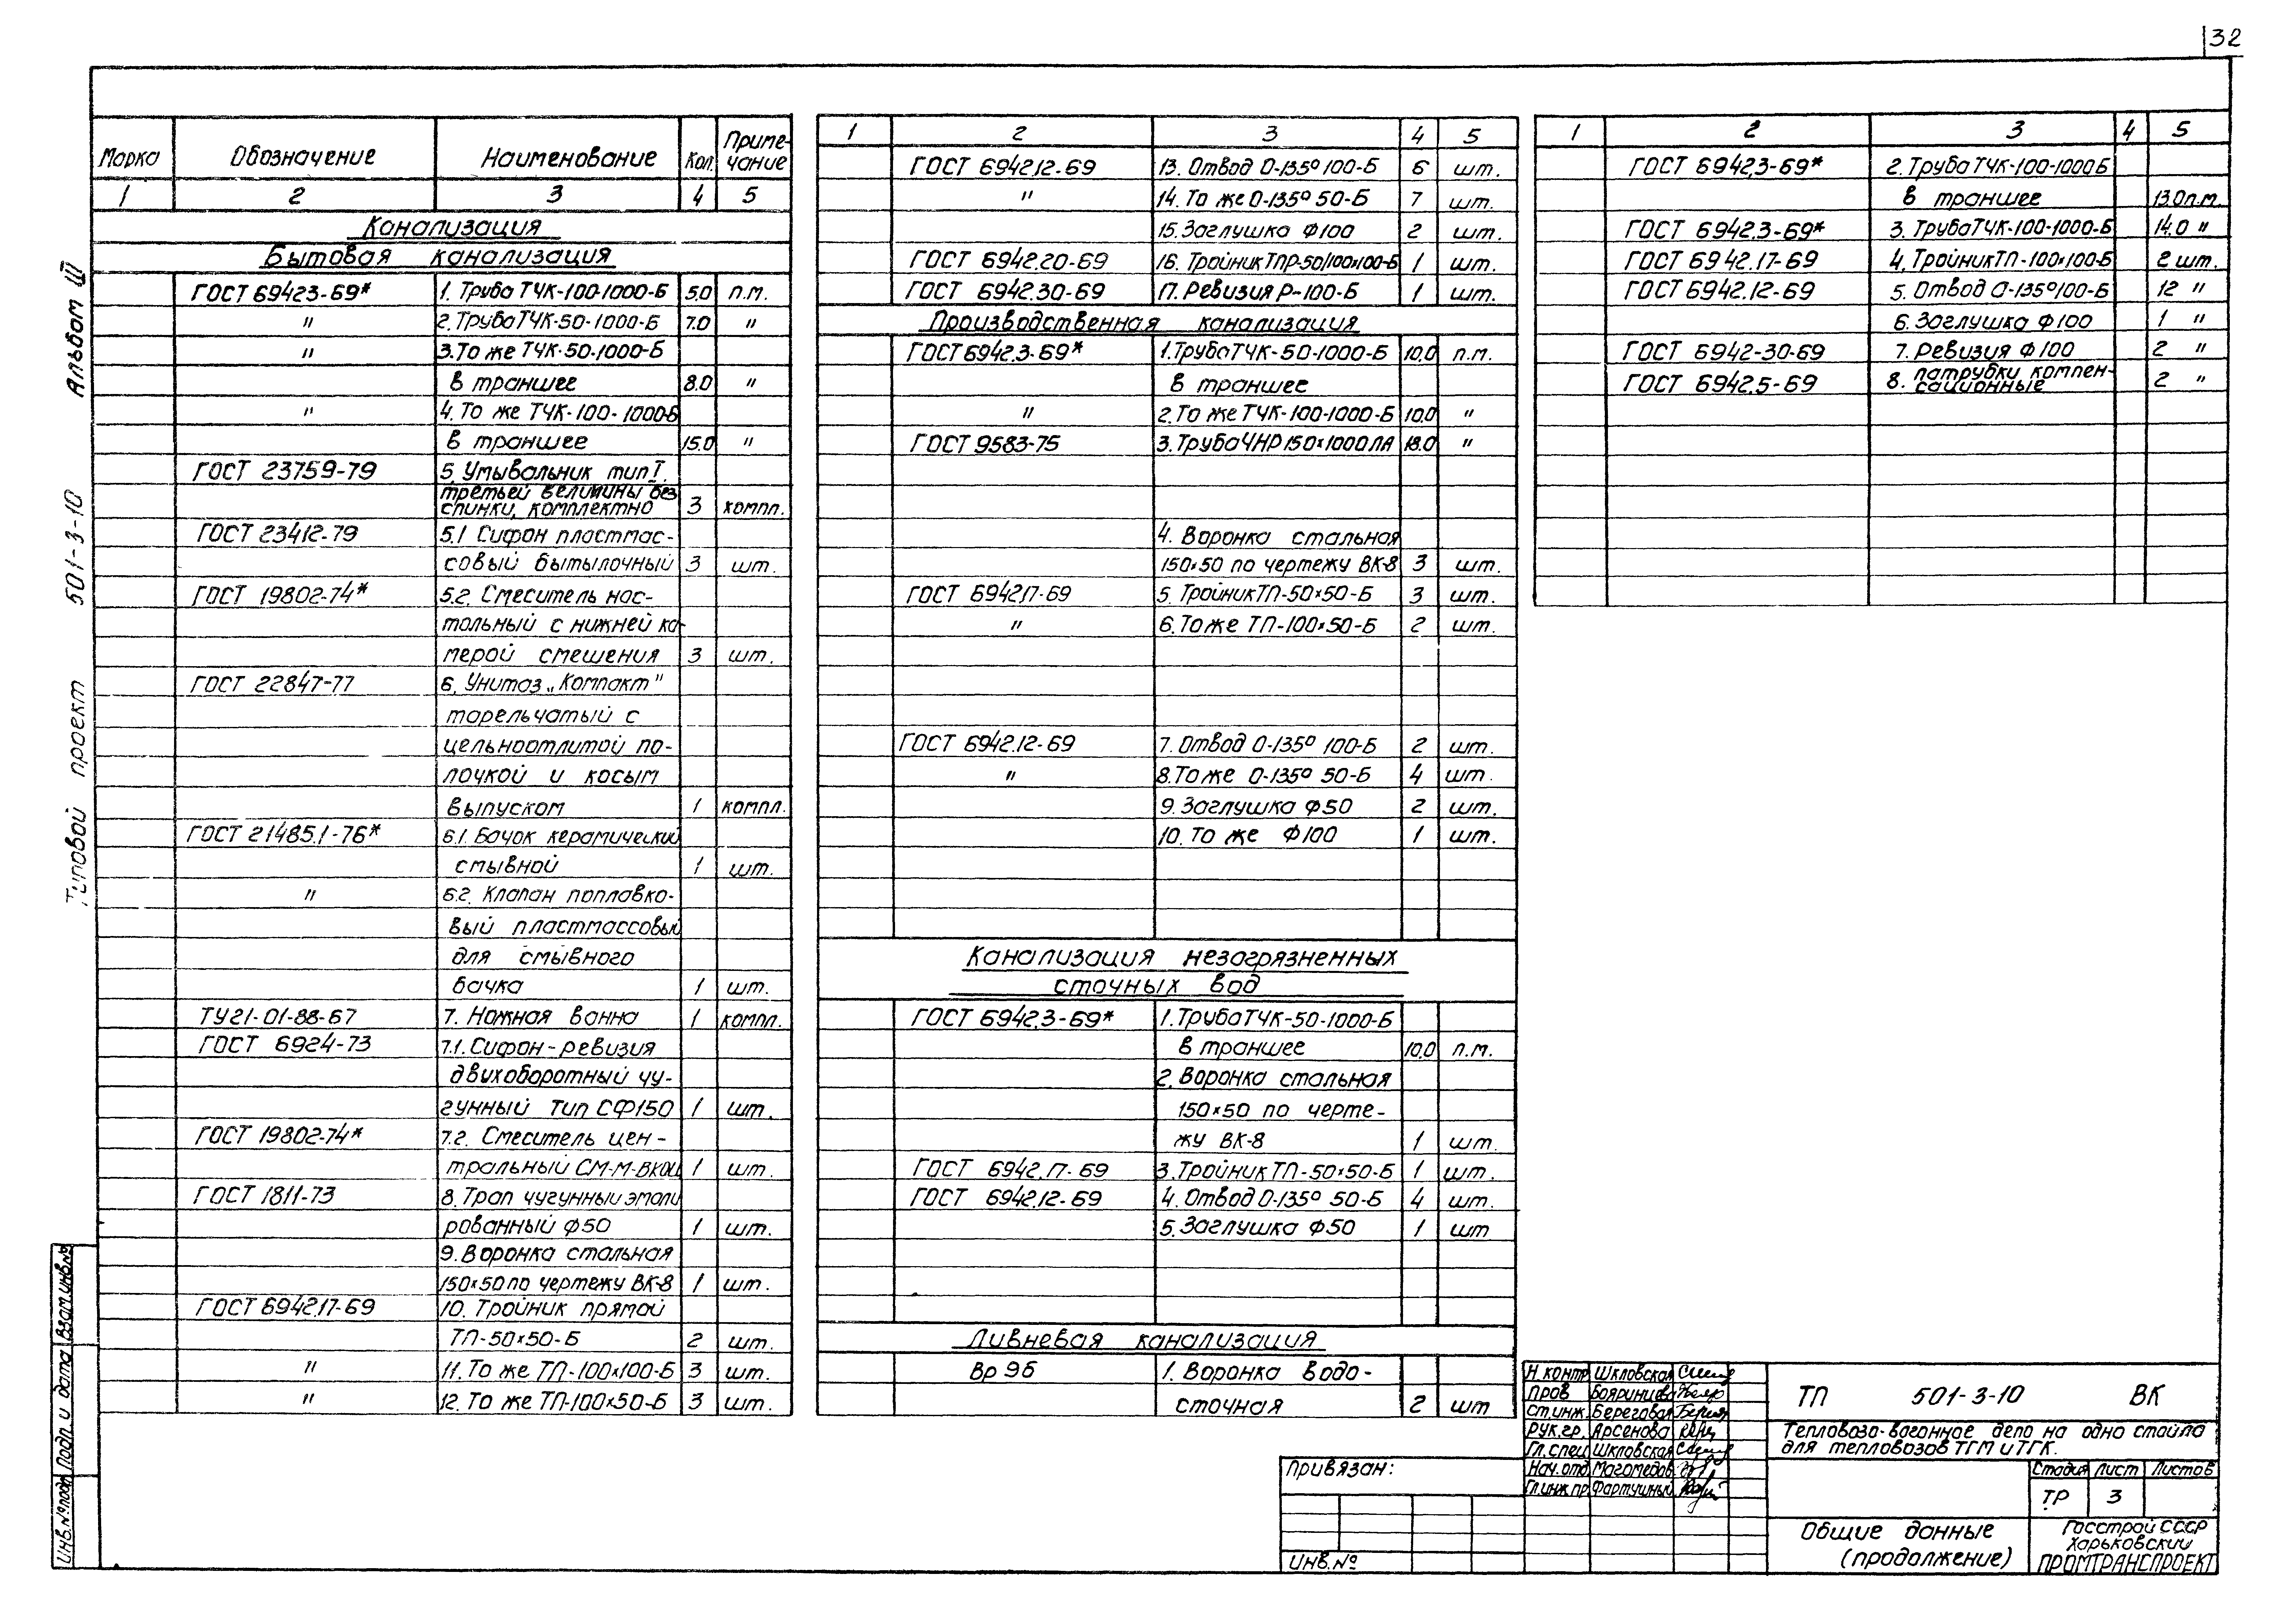 32
Альбом III
Типовой проект 501-3-10
Марка Обозначение Наименование Кол. Приме-чание
1 2 3 4 5
Канализация
Бытовая канализация
ГОСТ 6942.3-69* 1. Труба ТЧК-100-1000-Б 5.0 п.м.
" 2. Труба ТЧК-50-1000-Б 7.0 "
" 3. То же ТЧК-50-1000-Б
в траншее 8.0 "
" 4. То же ТЧК-100-1000-Б
в траншее 15.0 "
ГОСТ 23759-79 5. Умывальник тип I.
третьей величины без
спинки, комплектно 3 компл.
ГОСТ 23412-79 5.1 Сифон пластмас-
совый бытылочный 3 шт.
ГОСТ 19802-74* 5.2. Смеситель нас-
тольный с нижней ка-
мерой смешения 3 шт.
ГОСТ 22847-77 6. Унитаз „Компакт"
тарельчатый с
цельноотлитой по-
лочкой и косым
выпуском 1 компл.
ГОСТ 21485.1-76* 6.1. Бачок керамический
смывной 1 шт.
" 6.2. Клапан поплавко-
вый пластмассовый
для смывного
бачка 1 шт.
ТУ21-01-88-67 7. Ножная ванна 1 компл.
ГОСТ 6924-73 7.1. Сифон-ревизия
двухоборотный чу-
гунный тип СФ150 1 шт.
ГОСТ 19802-74* 7.2. Смеситель цен-
тральный 1 шт.
ГОСТ 1811-73 8. Трап чугунный эмали
рованный ф50 1 шт.
9. Воронка стальная
150×50 по чертежу ВК-8 1 шт.
ГОСТ 6942.17-69 10. Тройник прямой
ТП-50×50-Б 2 шт.
" 11. То же ТП-100×100-Б 3 шт.
" 12. То же ТП-100×50-Б 3 шт.
1 2 3 4 5
ГОСТ 6942.12-69 13. Отвод О-135° 100-Б 6 шт.
" 14. То же О-135° 50-Б 7 шт.
15. Заглушка ф100 2 шт.
ГОСТ 6942.20-69 16. Тройник ТПР-50/100×100-Б 1 шт.
ГОСТ 6942.30-69 17. Ревизия Р-100-Б 1 шт.
Производственная канализация
ГОСТ 6942.3-69* 1. Труба ТЧК-50-1000-Б 10.0 п.м.
в траншее
" 2. То же ТЧК-100-1000-Б 10.0 "
ГОСТ 9583-75 3. Труба ЧНР 150×1000 ЛА 18.0 "
4. Воронка стальная
150×50 по чертежу ВК-8 3 шт.
ГОСТ 6942.17-69 5. Тройник ТП-50×50-Б 3 шт.
" 6. То же ТП-100×50-Б 2 шт.
ГОСТ 6942.12-69 7. Отвод О-135° 100-Б 2 шт.
" 8. То же О-135° 50-Б 4 шт.
9. Заглушка ф50 2 шт.
10. То же ф100 1 шт.
Канализация незагрязненных
сточных вод
ГОСТ 6942.3-69* 1. Труба ТЧК-50-1000-Б
в траншее 10.0 п.м.
2. Воронка стальная
150×50 по черте-
жу ВК-8 1 шт.
ГОСТ 6942.17-69 3. Тройник ТП-50×50-Б 1 шт.
ГОСТ 6942.12-69 4. Отвод О-135° 50-Б 4 шт.
5. Заглушка ф50 1 шт
Ливневая канализация
Вр 9б 1. Воронка водо-
сточная 2 шт
1 2 3 4 5
ГОСТ 6942.3-69* 2. Труба ТЧК-100-1000Б
в траншее 13.0 п.м.
ГОСТ 6942.3-69* 3. Труба ТЧК-100-1000-Б 14.0 "
ГОСТ 6942.17-69 4. Тройник ТП-100×100-Б 2 шт.
ГОСТ 6942.12-69 5. Отвод О-135° 100-Б 12 "
6. Заглушка ф100 1 "
ГОСТ 6942-30-69 7. Ревизия ф100 2 "
ГОСТ 6942.5-69 8. патрубки компен-
сационные 2 "
Инв.№ подл. Подп. и дата Взам.инв.№
Привязан:
Инв.№
Н.контр Шкловская
Пров Бояринцева
Ст.инж. Береговая
Рук.гр. Арсенова
Гл.спец Шкловская
Нач.отд Магомедов
Гл.инж.пр Фартушный
ТП 501-3-10 ВК
Тепловозо-вагонное депо на одно стойло
для тепловозов ТГМ и ТГК.
Стадия Лист Листов
ТР 3
Общие данные
(продолжение)
Госстрой СССР
Харьковский
ПРОМТРАНСПРОЕКТ